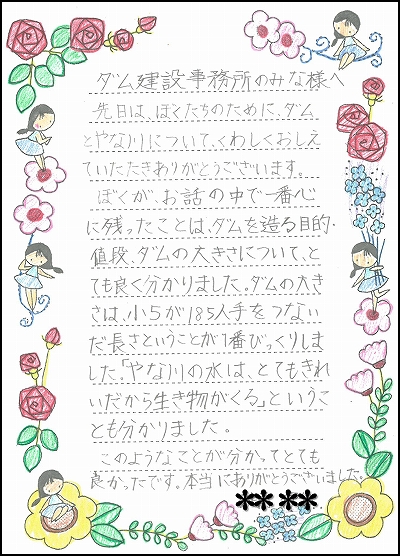 ダム建設事務所のみな様へ
先日は、ぼくたちのために、ダム
とやな川について、くわしくおしえ
ていただきありがとうございます。
ぼくが、お話の中で一番心
に残ったことは、ダムを造る目的・
値段、ダムの大きさについて、と
ても良く分かりました。ダムの大き
さは、小5が185人手をつない
だ長さということが1番びっくりしま
した。「やな川の水は、とてもきれ
いだから生き物がくる」というこ
とも分かりました。
このようなことが分かってとても
良かったです。本当にありがとうございました。
** **